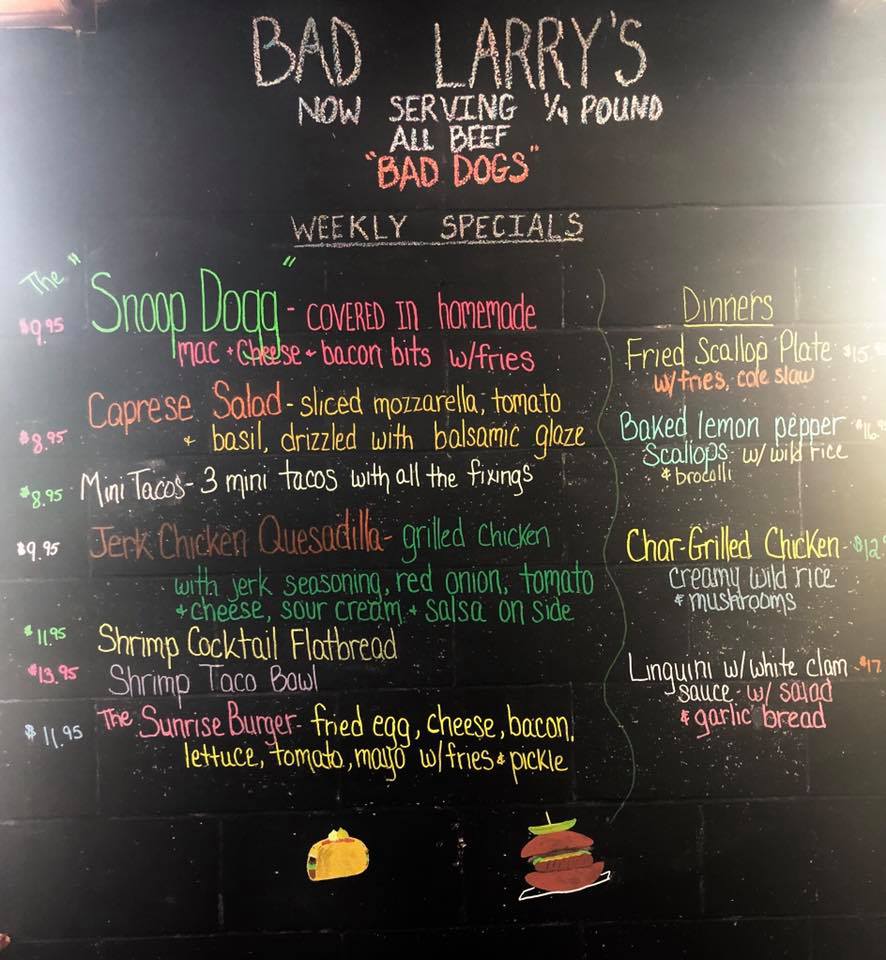 BAD LARRY'S
NOW SERVING 1/4 POUND
ALL BEEF
"BAD DOGS"
WEEKLY SPECIALS
The "Snoop Dogg" - COVERED IN homemade
$9.95
mac + Cheese + bacon bits w/fries
Caprese Salad - sliced mozzarella, tomato
$8.95 + basil, drizzled with balsamic glaze
$8.95 Mini Tacos - 3 mini tacos with all the fixings
$9.95 Jerk Chicken Quesadilla - grilled chicken
with jerk seasoning, red onion, tomato
+ cheese, sour cream + salsa on side
$11.95 Shrimp Cocktail Flatbread
$13.95 Shrimp Taco Bowl
$11.95 The Sunrise Burger - fried egg, cheese, bacon,
lettuce, tomato, mayo w/fries + pickle
Dinners
Fried Scallop Plate
w/fries, cole slaw
Baked lemon pepper
Scallops w/ wild rice
& brocolli
Char-Grilled Chicken - $12
creamy wild rice
& mushrooms
Linguini w/white clam - $17
sauce - w/ salad
& garlic bread